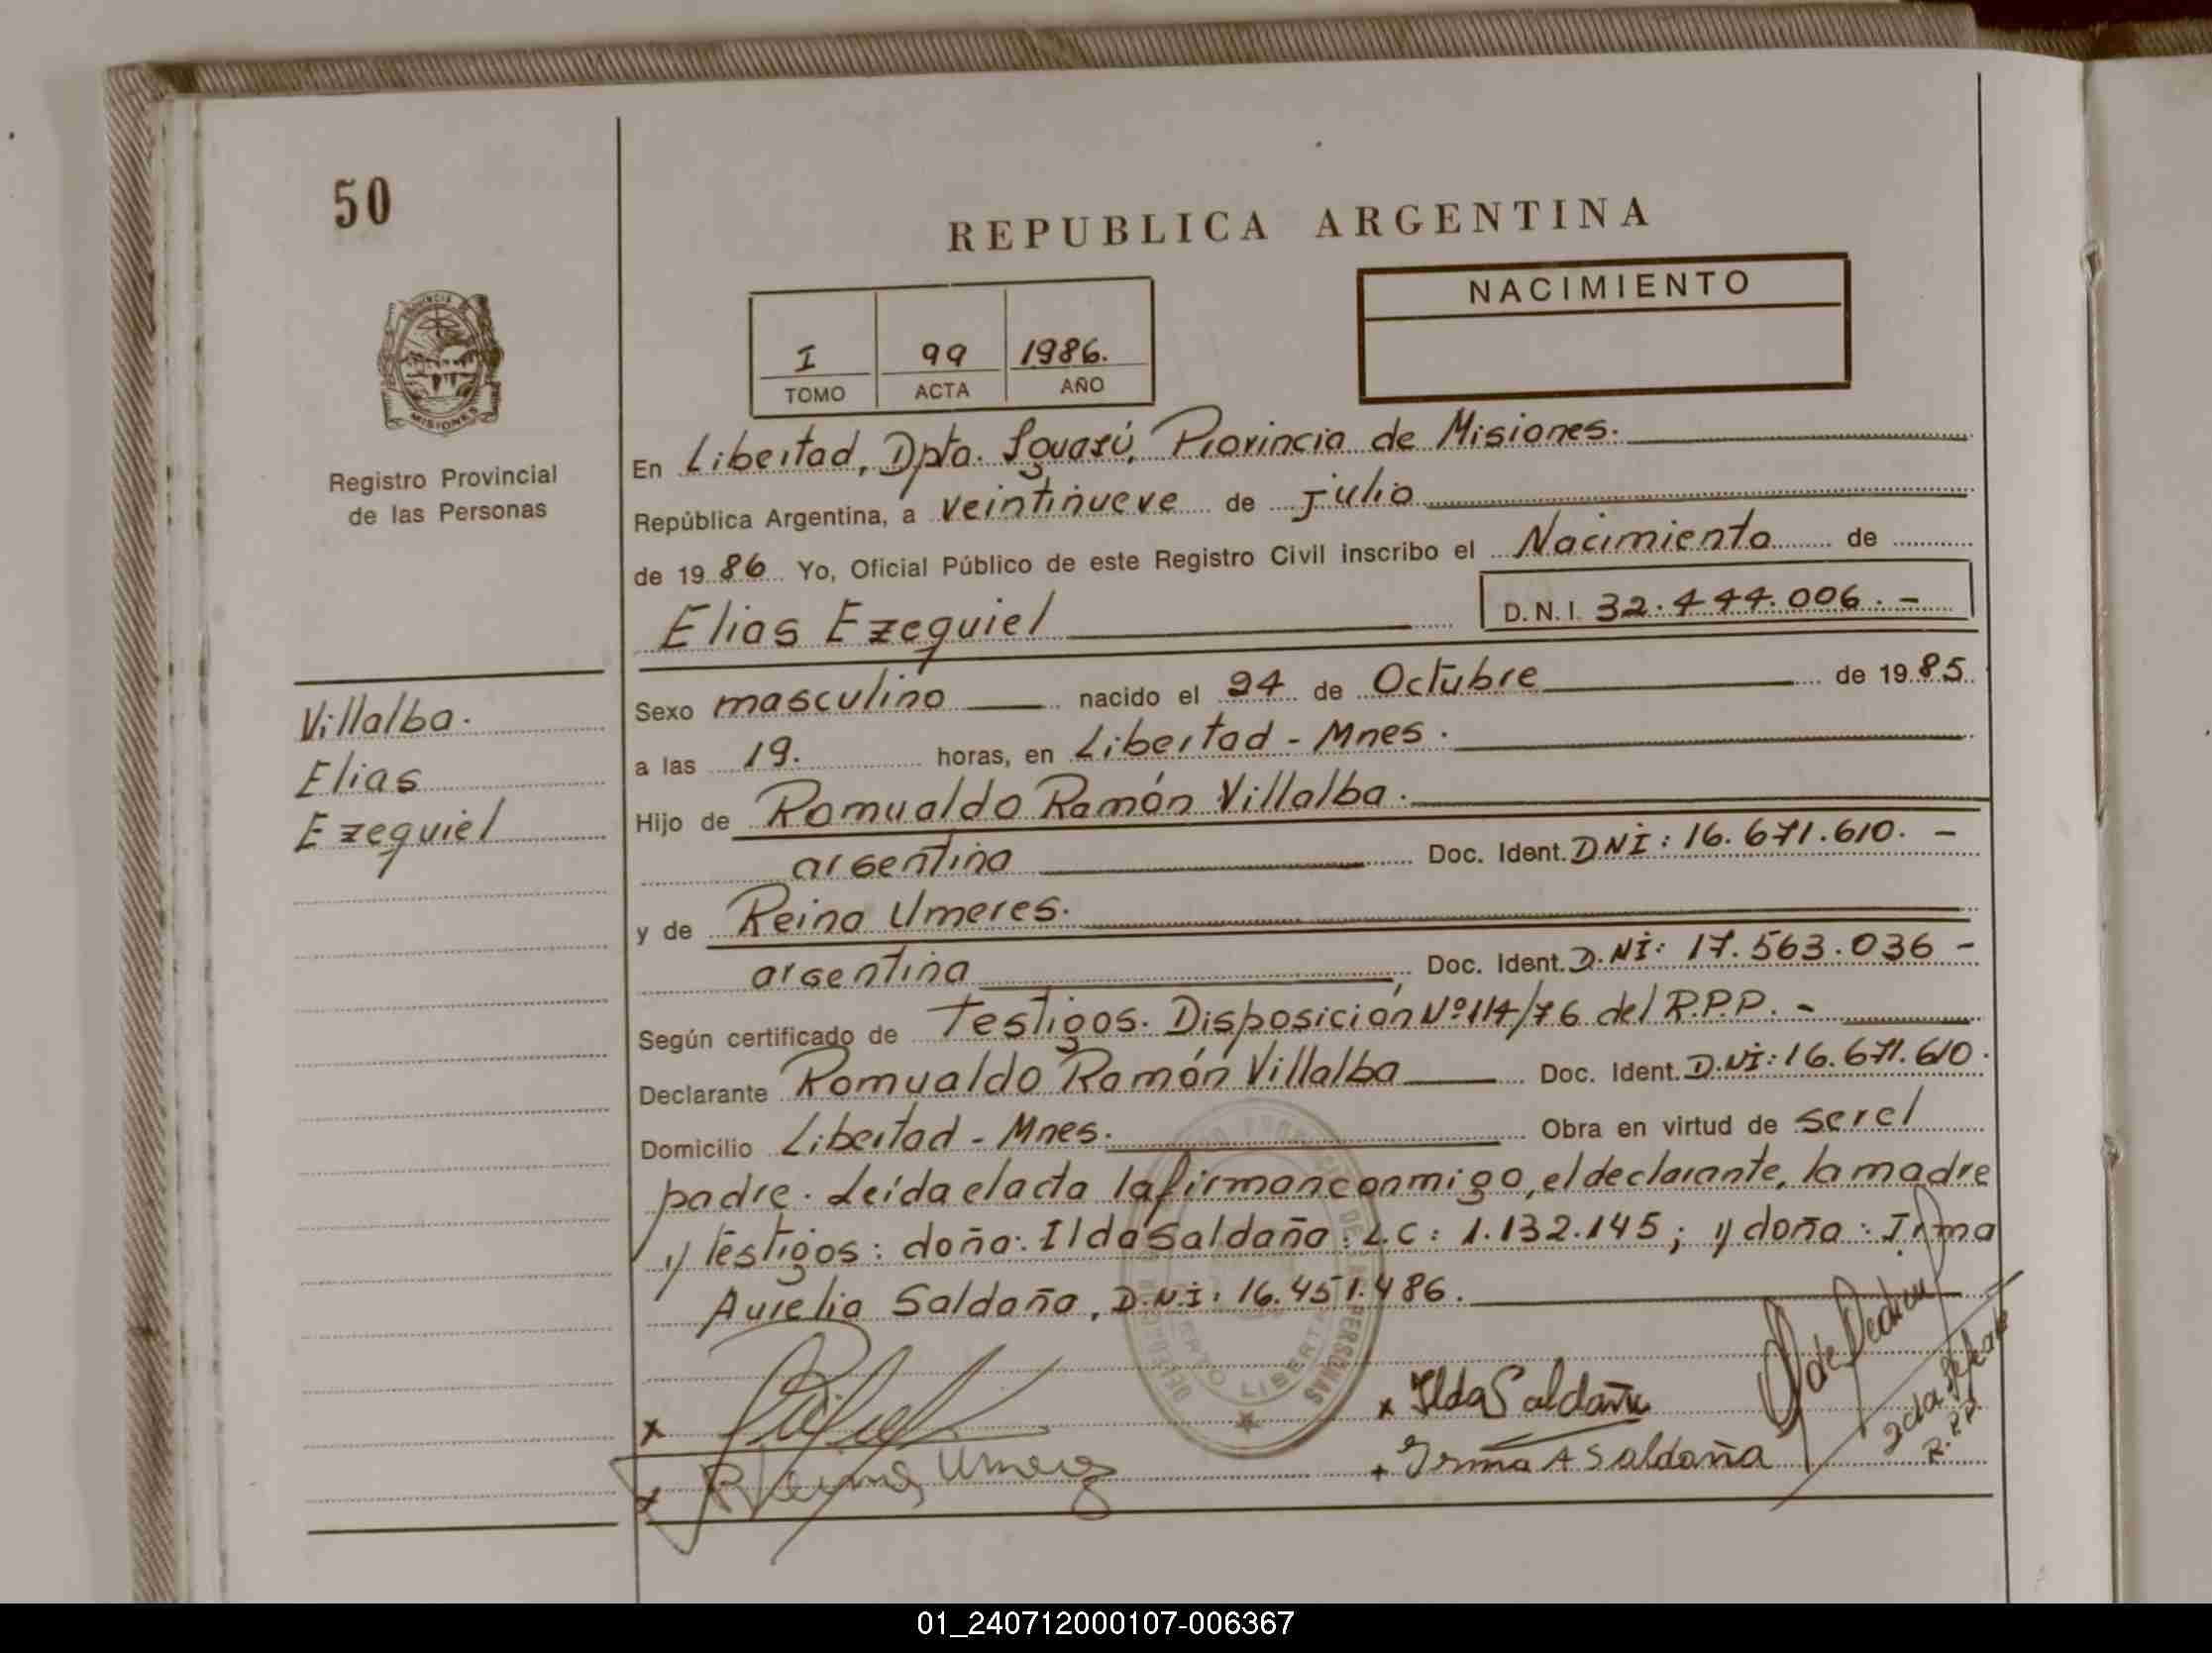 50
REPUBLICA ARGENTINA
PROVINCIA
MISIONES
Registro Provincial
de las Personas
I 99 1986.
TOMO ACTA AÑO
NACIMIENTO
En Libertad, Dpto. Iguazú, Provincia de Misiones.
República Argentina, a veintinueve de julio
de 19 86 Yo, Oficial Público de este Registro Civil inscribo el Nacimiento de
Elias Ezequiel D.N.I. 32.444.006.-
Villalba.
Elias
Ezequiel
Sexo masculino nacido el 24 de Octubre de 19 85
a las 19. horas, en Libertad - Mnes.
Hijo de Romualdo Ramón Villalba.
argentino Doc. Ident. DNI: 16.671.610. -
y de Reina Umeres.
argentina, Doc. Ident. D.NI: 17.563.036 -
Según certificado de Testigos. Disposición Nº 114/76 del R.P.P. -
Declarante Romualdo Ramón Villalba Doc. Ident. D.NI: 16.671.610.
Domicilio Libertad - Mnes. Obra en virtud de ser el
padre. Leída el acta la firman conmigo, el declarante, la madre
y testigos: doña: Ilda Saldaña L.C: 1.132.145; y doña: Irma
Aurelia Saldaña, D.N.I: 16.451.486.
DE LAS PERSONAS
LIBERTAD
x
x Ilda Saldaña
x Reina Umeres
+ Irma A Saldaña
R.P.P.
01_240712000107-006367